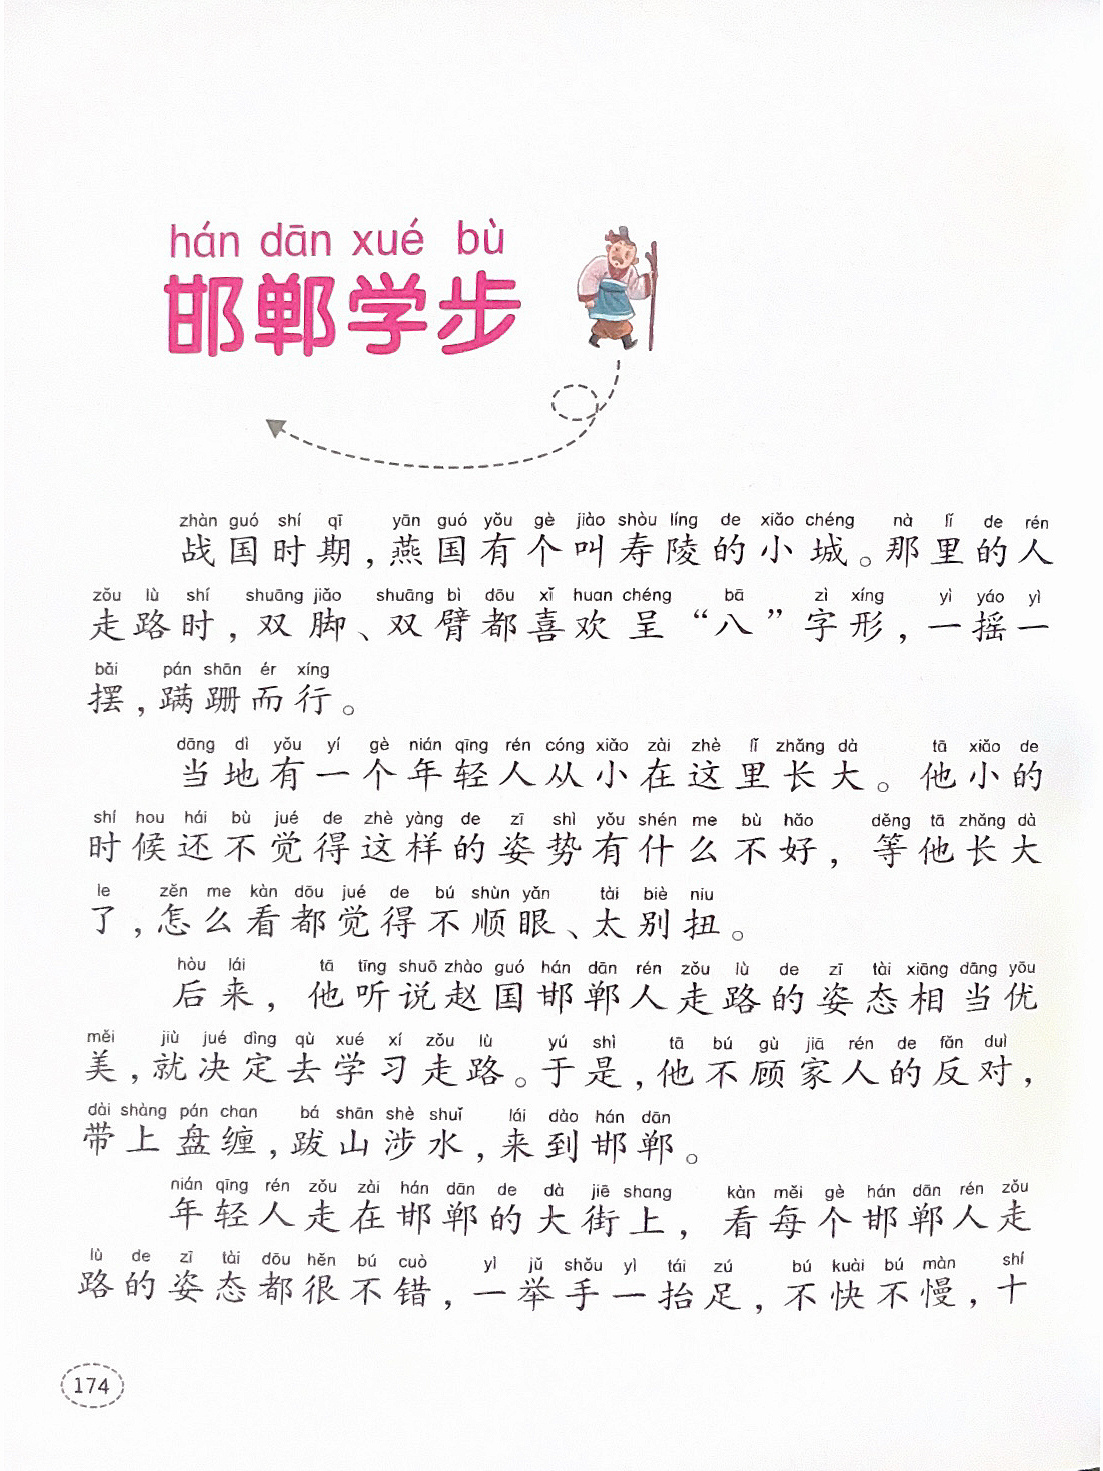 hán dān xué bù
邯郸学步
zhàn guó shí qī yān guó yǒu gè jiào shòu líng de xiǎo chéng nà lǐ de rén
战国时期，燕国有个叫寿陵的小城。那里的人
zǒu lù shí shuāng jiǎo shuāng bì dōu xǐ huan chéng bā zì xíng yì yáo yì
走路时，双脚、双臂都喜欢呈“八”字形，一摇一
bǎi pán shān ér xíng
摆，蹒跚而行。
dāng dì yǒu yí gè nián qīng rén cóng xiǎo zài zhè lǐ zhǎng dà tā xiǎo de
当地有一个年轻人从小在这里长大。他小的
shí hou hái bù jué de zhè yàng de zī shì yǒu shén me bù hǎo děng tā zhǎng dà
时候还不觉得这样的姿势有什么不好，等他长大
le zěn me kàn dōu jué de bú shùn yǎn tài biè niu
了，怎么看都觉得不顺眼、太别扭。
hòu lái tā tīng shuō zhào guó hán dān rén zǒu lù de zī tài xiāng dāng yōu
后来，他听说赵国邯郸人走路的姿态相当优
měi jiù jué dìng qù xué xí zǒu lù yú shì tā bú gù jiā rén de fǎn duì
美，就决定去学习走路。于是，他不顾家人的反对，
dài shàng pán chan bá shān shè shuǐ lái dào hán dān
带上盘缠，跋山涉水，来到邯郸。
nián qīng rén zǒu zài hán dān de dà jiē shang kàn měi gè hán dān rén zǒu
年轻人走在邯郸的大街上，看每个邯郸人走
lù de zī tài dōu hěn bú cuò yì jǔ shǒu yì tái zú bú kuài bú màn shí
路的姿态都很不错，一举手一抬足，不快不慢，十
174